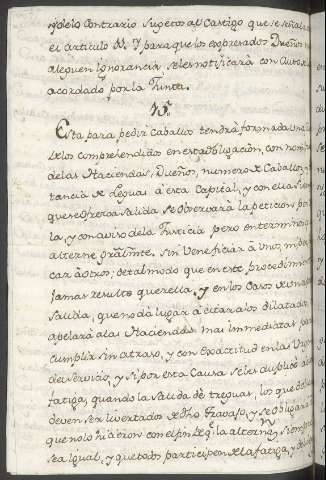 y de lo Contrario sugetos al Castigo que se señala
el articulo Y para que los expresados Dueños no
aleguen ignorancia se les notificará con
acordado por la Junta.
Esta para pedir Caballos tendrá formada una
de los comprehendidos en esta obligacion, con nom
de las Haciendas, Dueños, numero de Caballos, y
tancia de Leguas á esta Capital, y con ella siem
que se ofresca Salida se observará la peticion por
la, y con aviso de la Justicia pero en terminos
alterne gralmte. sin beneficiar á unos, ni perju
car á otros; de tal modo que en este procedimiento
jamas resulte querella, y en los Casos de una
Salida, que no dá lugar á citar á los dilatados
apelará á las Haciendas mas immediatas para
cumplir sin atraso, y con Exactitud en las
de servicio, y si por esta Causa se les duplicó a
fatiga, quando la Salida dé treguas, los que
deven ser livertados de dho Travajo, y se obligará
que no lo hicieron con el fin de qe. la alterna siempre
sea igual, y que todos participen de la fatiga, y